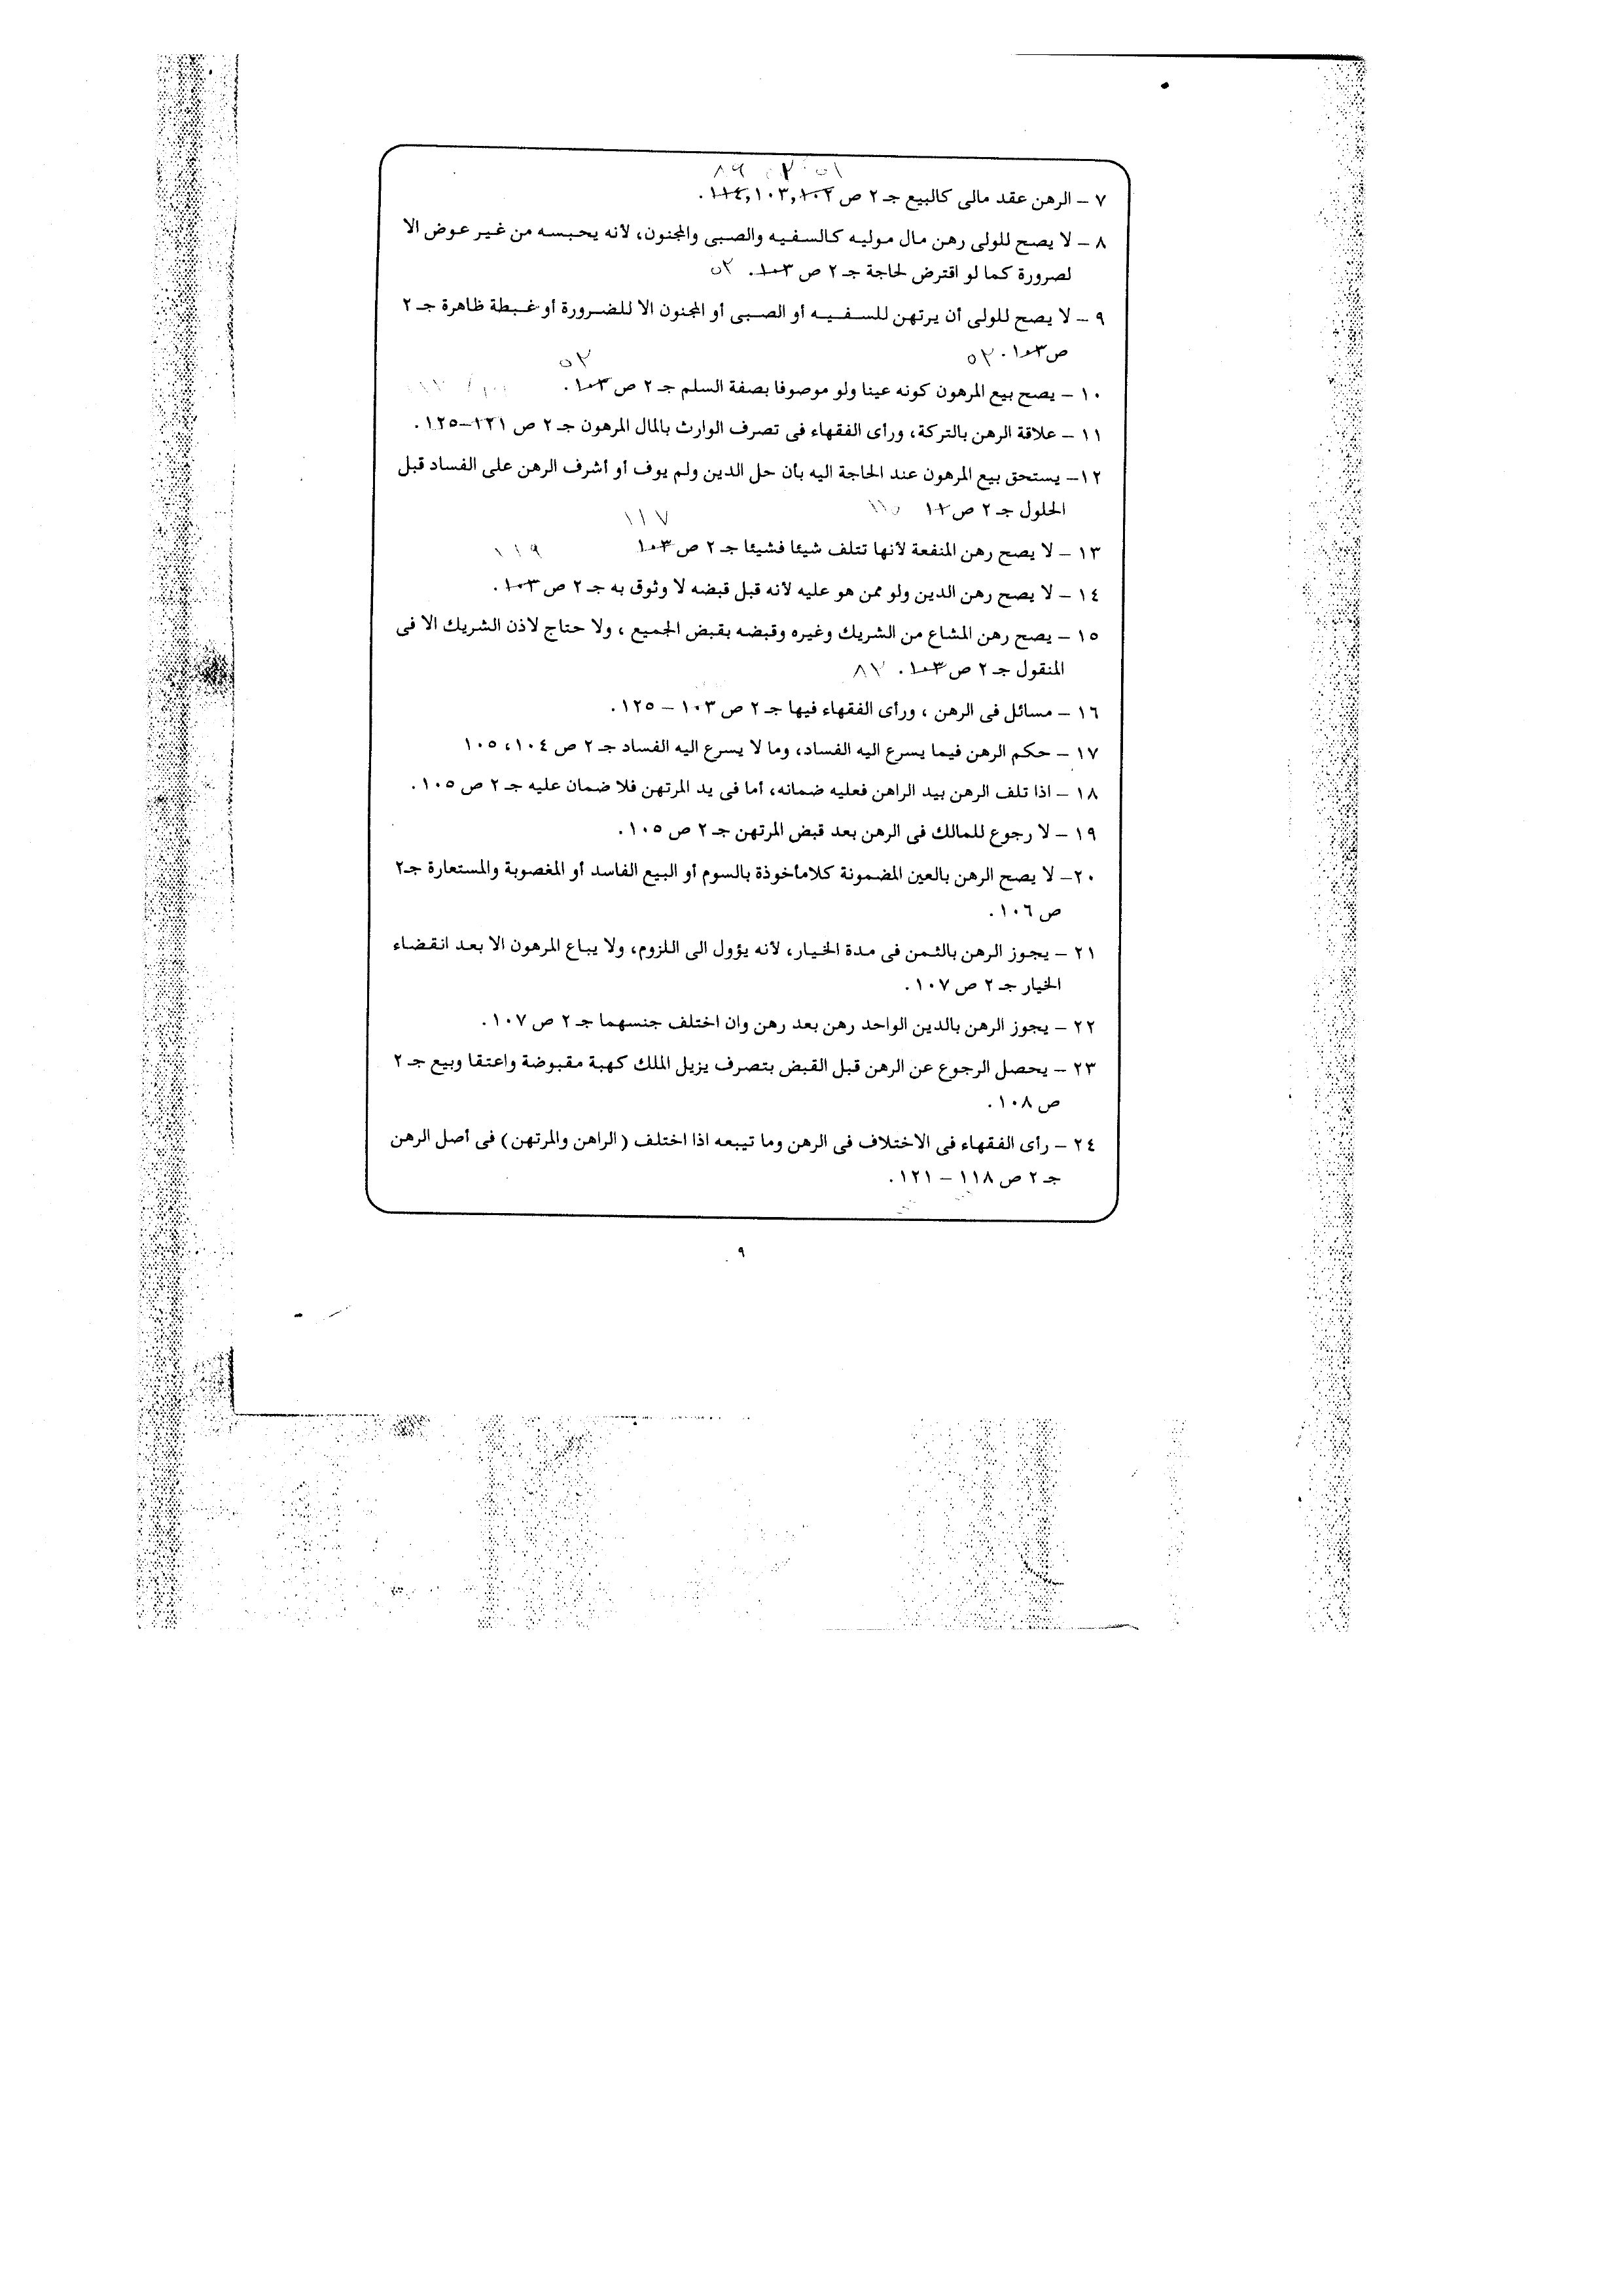 ٧ – الرهن عقد مالى كالبيع جـ ٢ ص ١٠٢, ١٠٣, ١١٤.
٨ – لا يصح للولى رهن مال موليه كالسفيه والصبى والمجنون، لأنه يحبسه من غير عوض الا
لصرورة كما لو اقترض لحاجة جـ ٢ ص ١٠٣. ٥٢
٩ – لا يصح للولى أن يرتهن للسفيه أو الصبى أو المجنون الا للضرورة أو غبطة ظاهرة جـ ٢
ص ١٠٣. ٥٢
٥٢
١٠ – يصح بيع المرهون كونه عينا ولو موصوفا بصفة السلم جـ ٢ ص ١٠٣.
١١ – علاقة الرهن بالتركة، ورأى الفقهاء فى تصرف الوارث بالمال المرهون جـ ٢ ص ١٢١–١٢٥.
١٢– يستحق بيع المرهون عند الحاجة اليه بأن حل الدين ولم يوف أو أشرف الرهن على الفساد قبل
الحلول جـ ٢ ص
١١٧
١٣ – لا يصح رهن المنفعة لأنها تتلف شيئا فشيئا جـ ٢ ص ١٠٣
١١٩
١٤ – لا يصح رهن الدين ولو ممن هو عليه لأنه قبل قبضه لا وثوق به جـ ٢ ص ١٠٣.
١٥ – يصح رهن المشاع من الشريك وغيره وقبضه بقبض الجميع ، ولا حتاج لاذن الشريك الا فى
المنقول جـ ٢ ص ١٠٣. ٨٧
١٦ – مسائل فى الرهن ، ورأى الفقهاء فيها جـ ٢ ص ١٠٣ – ١٢٥.
١٧ – حكم الرهن فيما يسرع اليه الفساد، وما لا يسرع اليه الفساد جـ ٢ ص ١٠٤، ١٠٥
١٨ – اذا تلف الرهن بيد الراهن فعليه ضمانه، أما فى يد المرتهن فلا ضمان عليه جـ ٢ ص ١٠٥.
١٩ – لا رجوع للمالك فى الرهن بعد قبض المرتهن جـ ٢ ص ١٠٥.
٢٠– لا يصح الرهن بالعين المضمونة كلامأخوذة بالسوم أو البيع الفاسد أو المغصوبة والمستعارة جـ٢
ص ١٠٦.
٢١ – يجوز الرهن بالثمن فى مدة الخيار، لأنه يؤول الى اللزوم، ولا يباع المرهون الا بعد انقضاء
الخيار جـ ٢ ص ١٠٧.
٢٢ – يجوز الرهن بالدين الواحد رهن بعد رهن وان اختلف جنسهما جـ ٢ ص ١٠٧.
٢٣ – يحصل الرجوع عن الرهن قبل القبض بتصرف يزيل الملك كهبة مقبوضة واعتقا وبيع جـ ٢
ص ١٠٨.
٢٤ – رأى الفقهاء فى الاختلاف فى الرهن وما تيبعه اذا اختلف (الراهن والمرتهن) فى أصل الرهن
جـ ٢ ص ١١٨ – ١٢١.
٩